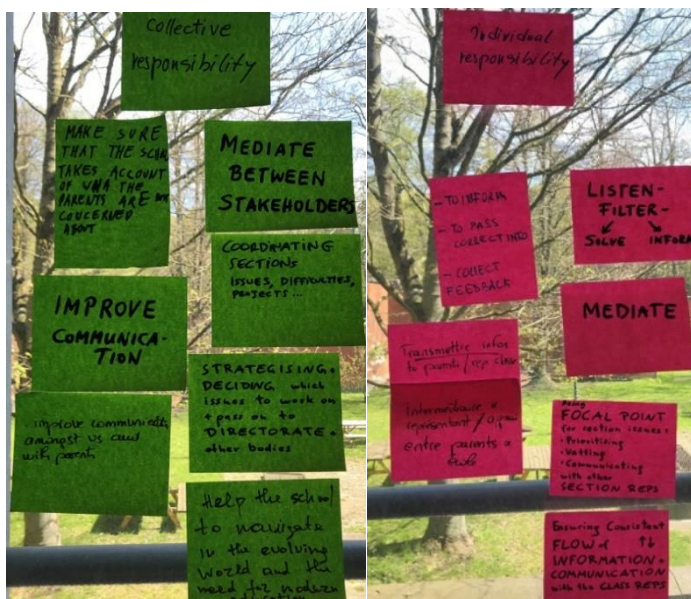 Collective
responsibility
MAKE SURE
THAT THE
TAKES ACCOUNT
OF THE
PARENTS ARE
CONCERNED
ABOUT
MEDIATE
BETWEEN
STAKEHOLDERS
COORDINATING
SECTIONS
ISSUES, DIFFICULTIES,
PROJECTS...
IMPROVE
COMMUNICA-
TION
STRATEGISING +
DECIDING which
issues to work on
+ pass on to
DIRECTORATE +
other bodies
improve
amongst us and
with parents
Help the school
to navigate
in the evolving
world and the
need for modern
Individual
responsibility
- TO INFORM
- TO PASS
CORRECT INFO
- COLLECT
FEEDBACK
LISTEN-
FILTER-
SOLVE INFORM
MEDIATE
Transmettre infos
to parents / rep classe
entre parents
FOCAL POINT
for section issues:
• Prioritising
• Vetting
• Communicating
with other
SECTION REPS
Ensuring Consistent
FLOW of ↑↓
INFORMATION +
COMMUNICATION
with the CLASS REPS